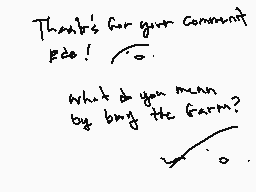 Thanks for your comment
Edo!
what do you mean
by buy the farm?